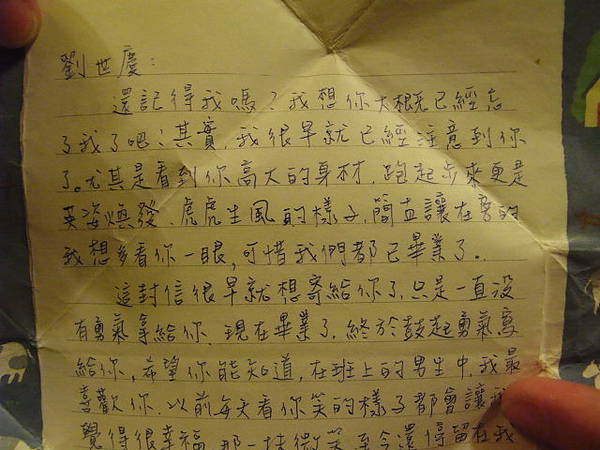 劉世慶：
還記得我嗎？我想你大概已經忘
了我了吧！其實，我很早就已經注意到你
了。尤其是看到你高大的身材，跑起步來更是
英姿煥發、虎虎生風的樣子，簡直讓在旁的
我想多看你一眼，可惜我們都已畢業了。
這封信很早就想寄給你了，只是一直沒
有勇氣拿給你，現在畢業了，終於鼓起勇氣寫
給你，希望你能知道，在班上的男生中，我最
喜歡你，以前每天看你笑的樣子都會讓我
覺得很幸福，那一抹微笑至今還停留在我